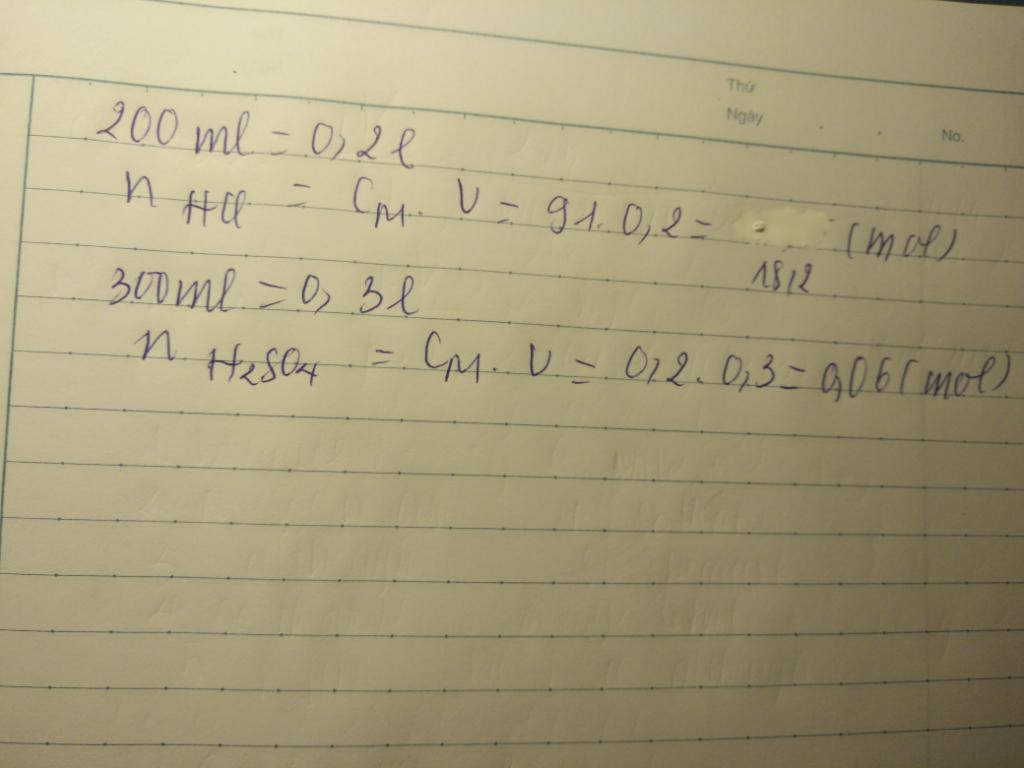 Thứ
Ngày
No.
200 ml = 0,2l
n HCl = CM. V = 91. 0,2 = (mol)
18,2
300ml = 0, 3l
n H2SO4 = CM. V = 0,2. 0,3 = 0,06 (mol)